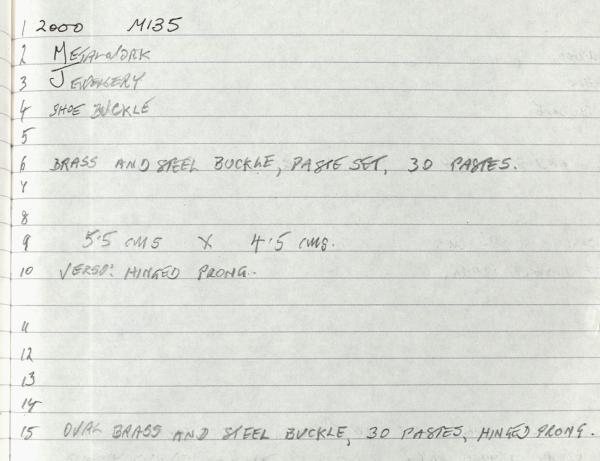 1 2000 M135
2 METALWORK
3 JEWELLERY
4 SHOE BUCKLE
5
6 BRASS AND STEEL BUCKLE, PASTE SET, 30 PASTES.
7
8
9 5.5 CMS X 4.5 CMS.
10 VERSO: HINGED PRONG.
11
12
13
14
15 OVAL BRASS AND STEEL BUCKLE, 30 PASTES, HINGED PRONG.